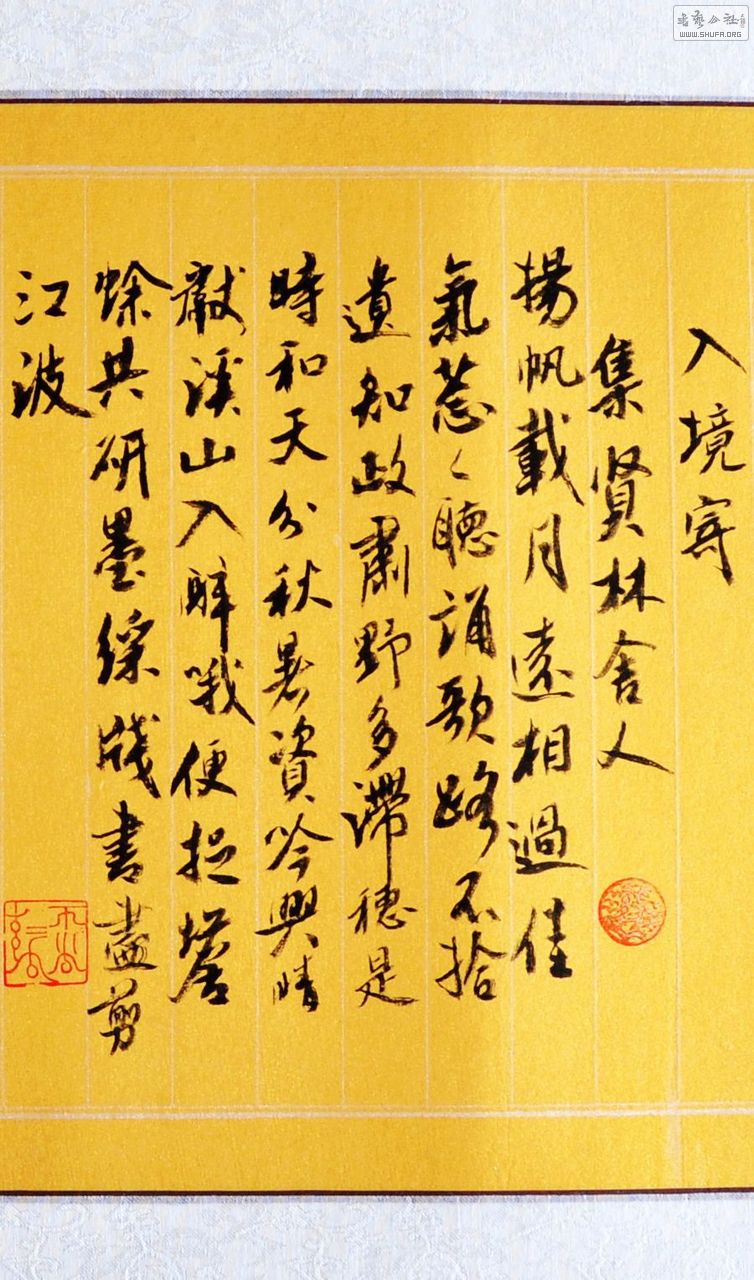 入境寄
集賢林舍人
揚帆載月遠相過佳
氣葱々聽誦歌路不拾
遺知政肅野多滯穗是
時和天分秋暑資吟興晴
獻溪山入醉哦便捉蟾
蜍共研墨綵牋書盡剪
江波
書藝公社
WWW.SHUFA.ORG